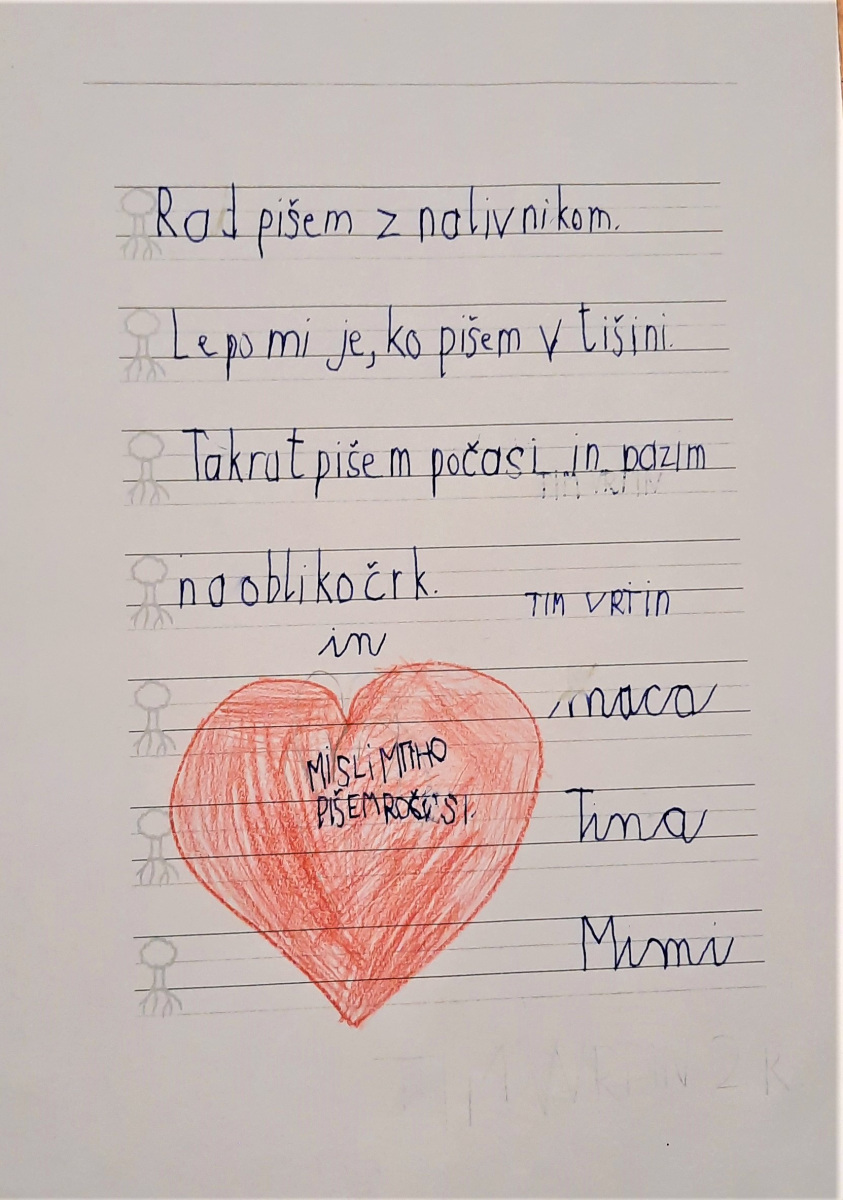 Rad pišem z nalivnikom.
Lepo mi je, ko pišem v tišini.
Takrat pišem počasi in pazim
na obliko črk.
TIM VRTIN
in
maca
MiSLiM
PIŠEM
Tina
Mimi